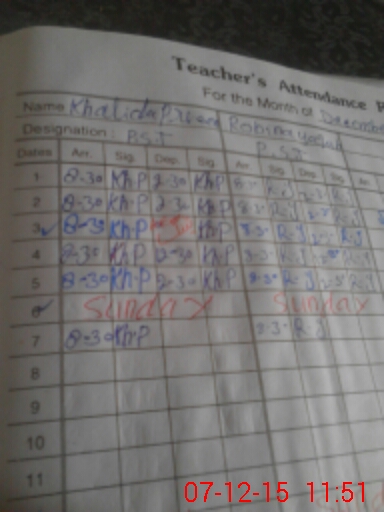 Teacher's Attendance
For the Month of
Name Khalida Robina
Designation : P.S.T P.S.T
Dates Arr. Sig. Dep. Sig. Arr. Sig. Dep. Sig.
1 8-30 Kh.P 2-30 Kh.P 8-30 R.Y 2-30 R.Y
2 8-30 Kh.P 2-30 Kh.P 8-30 R.Y R.Y
3 8-30 Kh.P Kh.P 8-30 R.Y R.Y
4 8-30 Kh.P 2-30 Kh.P 8-30 R.Y R.Y
5 8-30 Kh.P 2-30 Kh.P 8-30 R.Y R.Y
6 Sunday Sunday
7 8-30 Kh.P 8-30 R.Y
8
9
10
11
07-12-15 11:51